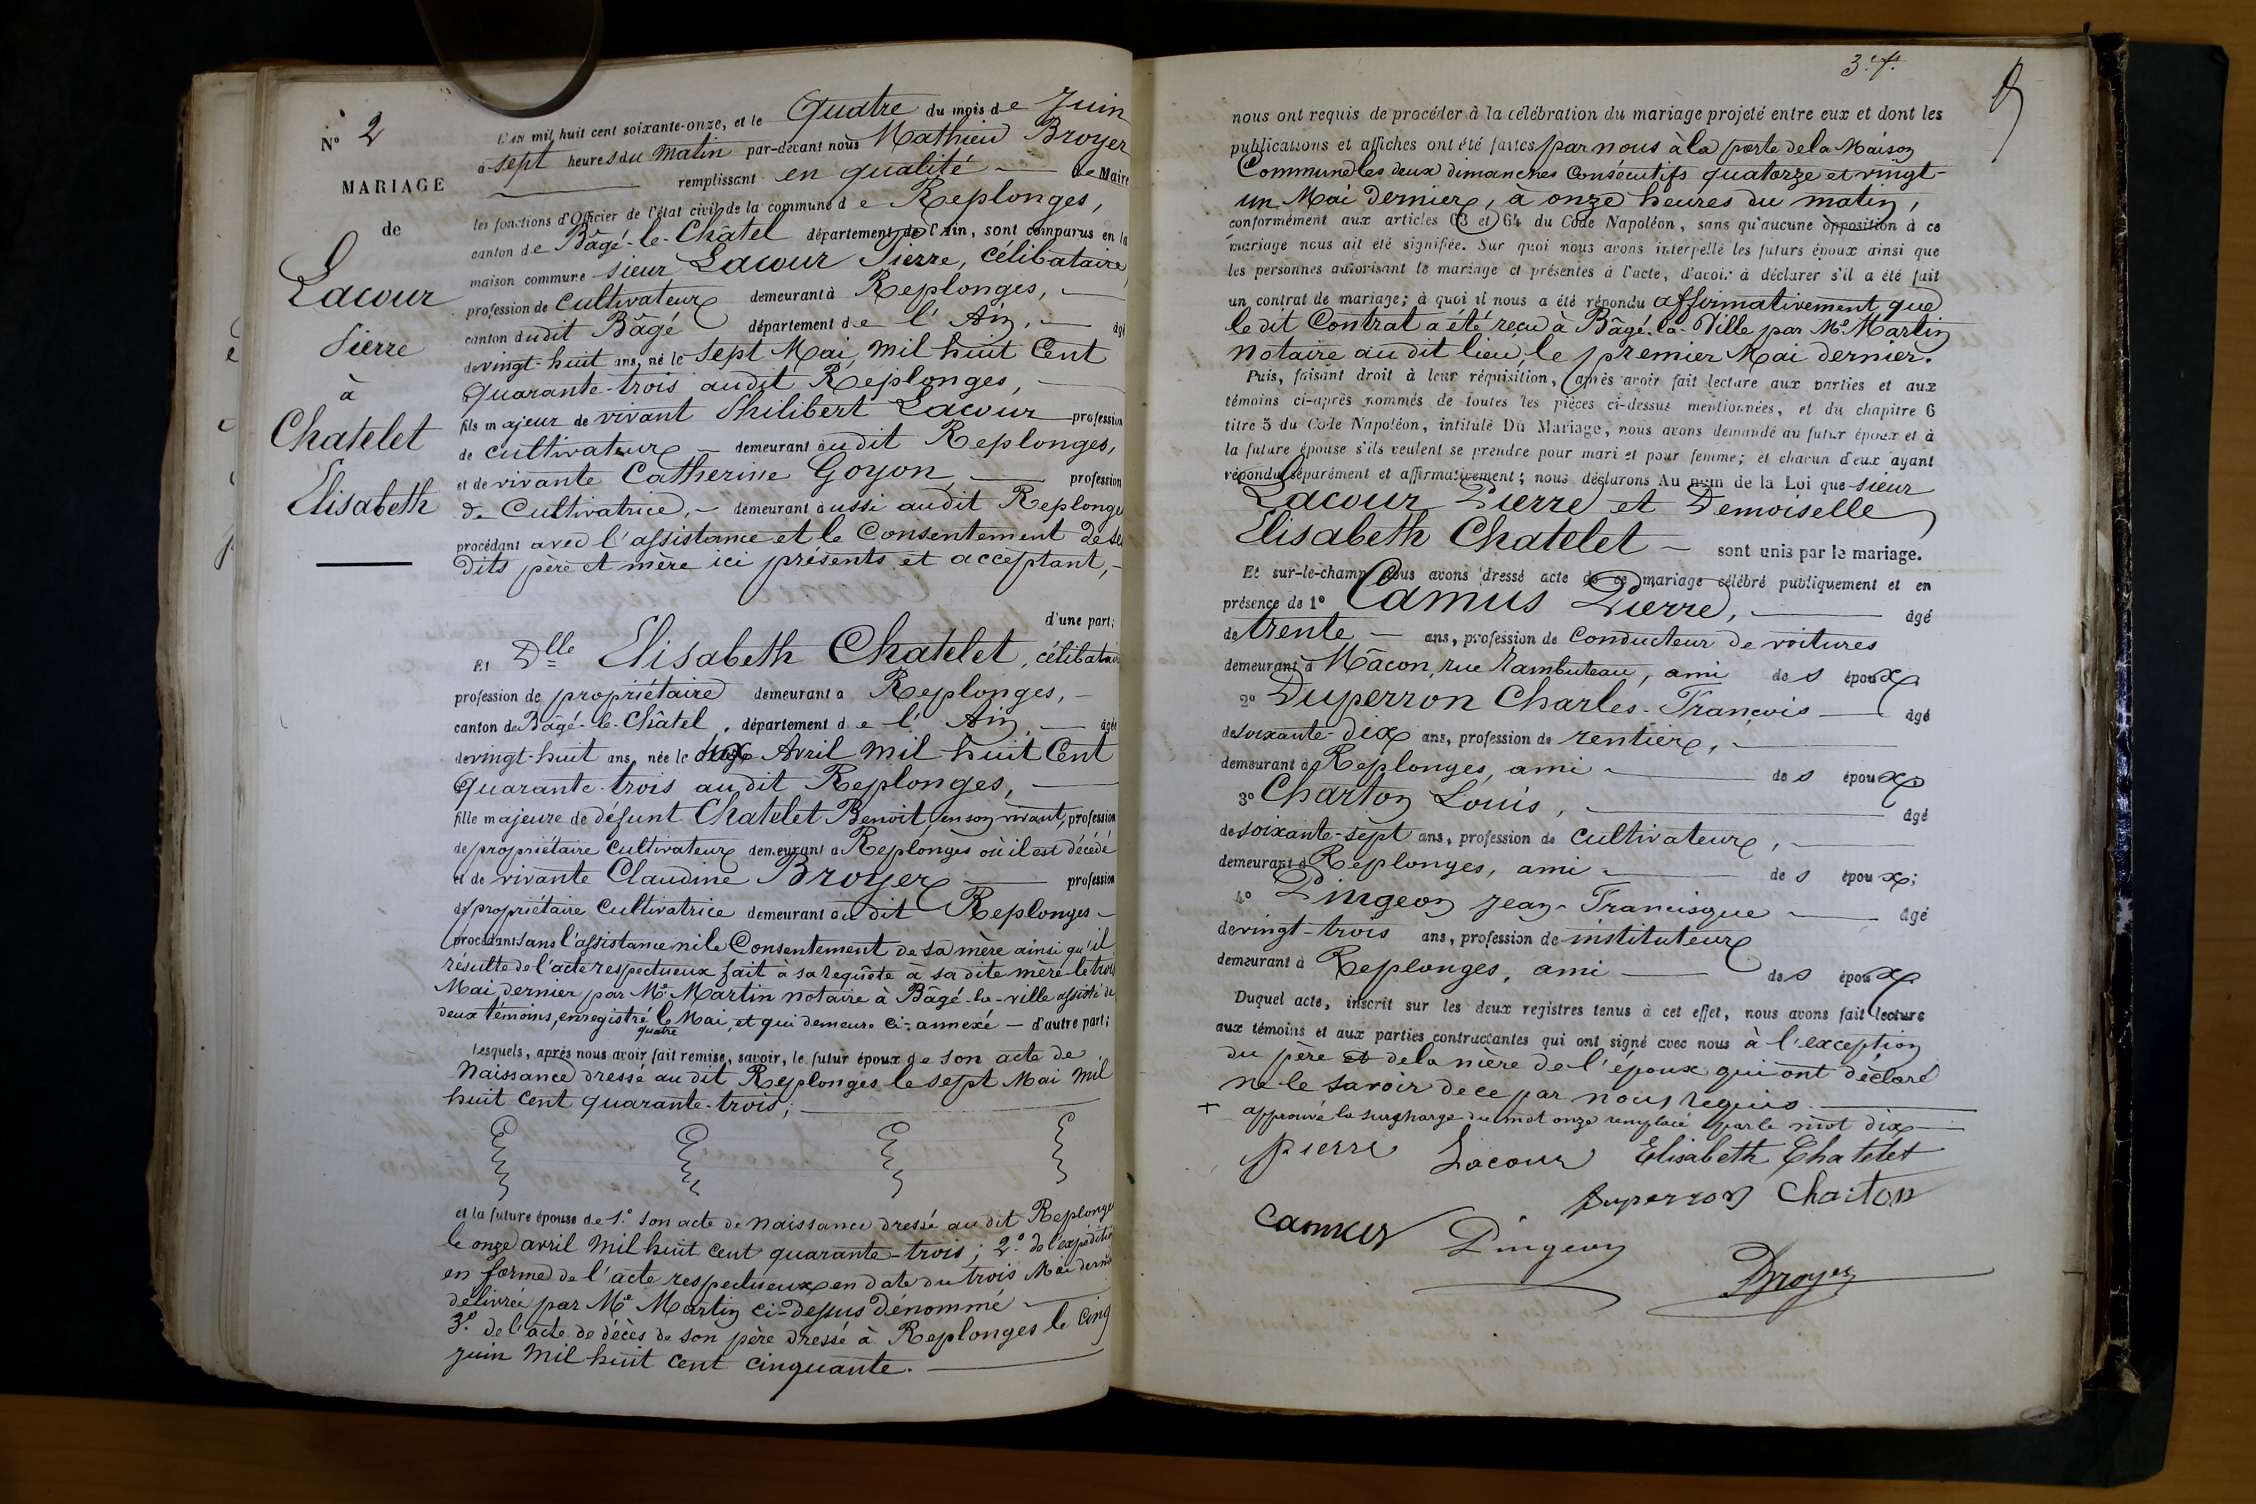 N° 2
MARIAGE
de
Lacour
Pierre
à
Chatelet
Elisabeth
L'AN mil huit cent soixante-onze, et le Quatre du mois de Juin
à sept heures du matin par-devant nous Mathieu Broyer
remplissant en qualité de Maire
les fonctions d'Officier de l'état civil de la commune de Replonges,
canton de Bâgé-le-Châtel département de l'Ain, sont comparus en la
maison commune sieur Lacour Pierre, célibataire,
profession de cultivateur demeurant à Replonges,
canton dudit Bâgé département de l'Ain, âgé
de vingt-huit ans, né le sept Mai, mil huit Cent
Quarante-trois audit Replonges,
fils majeur de vivant Philibert Lacour profession
de cultivateur demeurant audit Replonges,
et de vivante Catherine Goyon profession
de Cultivatrice, demeurant aussi audit Replonges
procédant avec l'assistance et le Consentement de ses
dits père et mère ici présents et acceptant,
d'une part;
Et Dlle Elisabeth Chatelet, célibataire
profession de propriétaire demeurant à Replonges,
canton de Bâgé-le-Châtel, département de l'Ain, âgée
de vingt-huit ans, née le dix Avril mil huit Cent
Quarante-trois audit Replonges,
fille majeure de défunt Chatelet Benoit, en son vivant, profession
de propriétaire cultivateur demeurant à Replonges où il est décédé
et de vivante Claudine Broyer profession
de propriétaire Cultivatrice demeurant au dit Replonges
procédant sans l'assistance ni le Consentement de sa mère ainsi qu'il
résulte de l'acte respectueux fait à sa requête à sa dite mère le trois
Mai dernier par Me Martin notaire à Bâgé-la-ville assisté de
deux témoins, enregistré le quatre Mai, et qui demeure ci-annexé — d'autre part;
Lesquels, après nous avoir fait remise, savoir, le futur époux de son acte de
Naissance dressé au dit Replonges le sept Mai mil
huit cent quarante-trois;
et la future épouse de 1° son acte de naissance dressé au dit Replonges
le onze avril mil huit cent quarante-trois; 2° de l'expédition
en forme de l'acte respectueux en date du trois Mai dernier
délivrée par Me Martin ci-dessus dénommé
3° de l'acte de décès de son père dressé à Replonges le cinq
juin mil huit cent cinquante.
nous ont requis de procéder à la célébration du mariage projeté entre eux et dont les
publications et affiches ont été faites par nous à la porte de la Maison
Commune les deux dimanches Consécutifs quatorze et vingt-
un Mai dernier, à onze heures du matin,
conformément aux articles 63 et 64 du Code Napoléon, sans qu'aucune opposition à ce
mariage nous ait été signifiée. Sur quoi nous avons interpellé les futurs époux ainsi que
les personnes autorisant le mariage et présentes à l'acte, d'avoir à déclarer s'il a été fait
un contrat de mariage; à quoi il nous a été répondu affirmativement que
le dit Contrat a été reçu à Bâgé-la-Ville par Me Martin
notaire au dit lieu, le premier Mai dernier.
Puis, faisant droit à leur réquisition, après avoir fait lecture aux parties et aux
témoins ci-après nommés de toutes les pièces ci-dessus mentionnées, et du chapitre 6
titre 5 du Code Napoléon, intitulé Du Mariage, nous avons demandé au futur époux et à
la future épouse s'ils veulent se prendre pour mari et pour femme; et chacun d'eux ayant
répondu séparément et affirmativement; nous déclarons Au nom de la Loi que sieur
Lacour Pierre et Demoiselle
Elisabeth Chatelet — sont unis par le mariage.
Et sur-le-champ nous avons dressé acte de ce mariage célébré publiquement et en
présence de 1° Camus Pierre, âgé
de trente ans, profession de Conducteur de voitures
demeurant à Mâcon, rue Rambuteau, ami des époux
2° Duperron Charles-François âgé
de soixante-dix ans, profession de rentier,
demeurant à Replonges, ami des époux
3° Charton Louis, âgé
de soixante-sept ans, profession de cultivateur,
demeurant à Replonges, ami des époux;
4° Pingeon Jean-Francisque âgé
de vingt-trois ans, profession de instituteur
demeurant à Replonges, ami des époux
Duquel acte, inscrit sur les deux registres tenus à cet effet, nous avons fait lecture
aux témoins et aux parties contractantes qui ont signé avec nous à l'exception
du père et de la mère de l'époux qui ont déclaré
ne le savoir de ce par nous requis.
+ approuvé la surcharge du mot onze remplacé par le mot dix
pierre Lacour Elisabeth Chatelet
Duperron Charton
camus Pingeon
Broyer